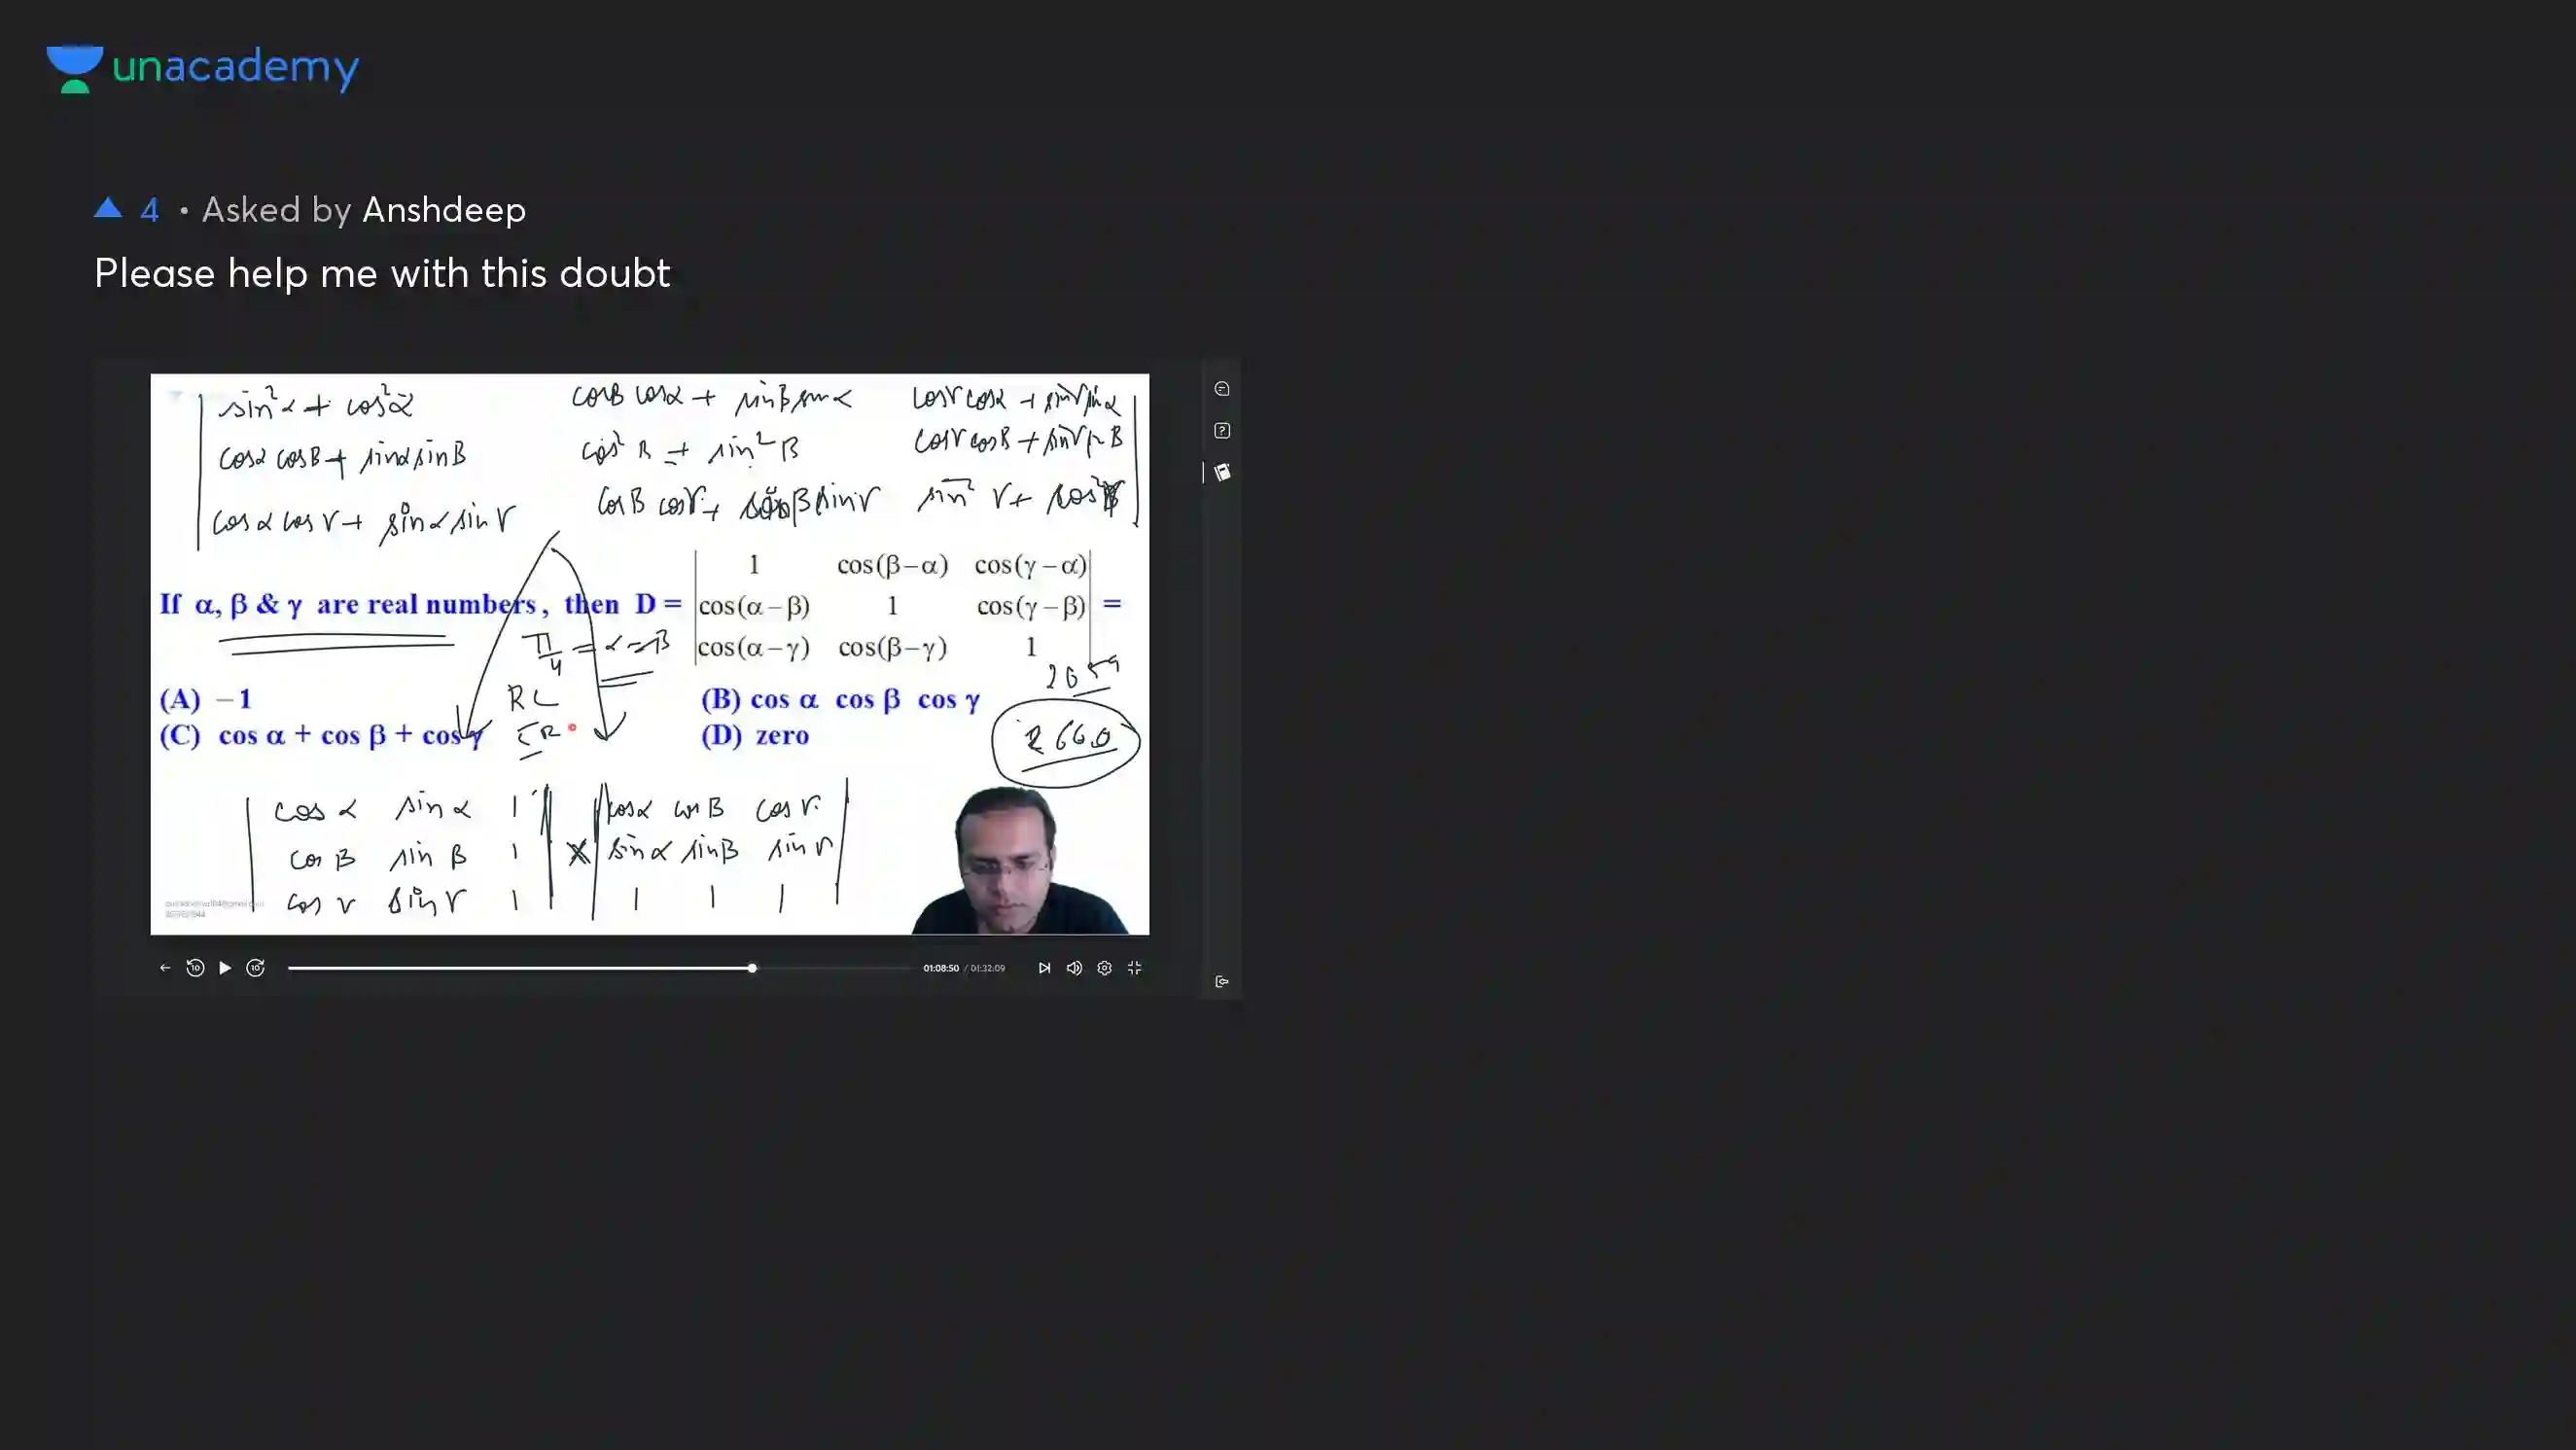 unacademy
4 • Asked by Anshdeep
Please help me with this doubt
sin²α + cos²α cosβ cosα + sinβ sinα cosγ cosα + sinγ sinα
cosα cosβ + sinα sinβ cos²β + sin²β cosγ cosβ + sinγ β
cosα cosγ + sinα sinγ cosβ cosγ + sinβ sinγ sin²γ + cos²γ
1 cos(β−α) cos(γ−α)
If α, β & γ are real numbers, then D = cos(α−β) 1 cos(γ−β) =
cos(α−γ) cos(β−γ) 1
π/4 = α = β
2659
(A) −1 (B) cos α cos β cos γ
RC
(C) cos α + cos β + cos γ (D) zero
CR
2660
cosα sinα 1 × cosα cosβ cosγ
cosβ sinβ 1 sinα sinβ sinγ
cosγ sinγ 1 1 1 1
01:08:50 / 01:32:09